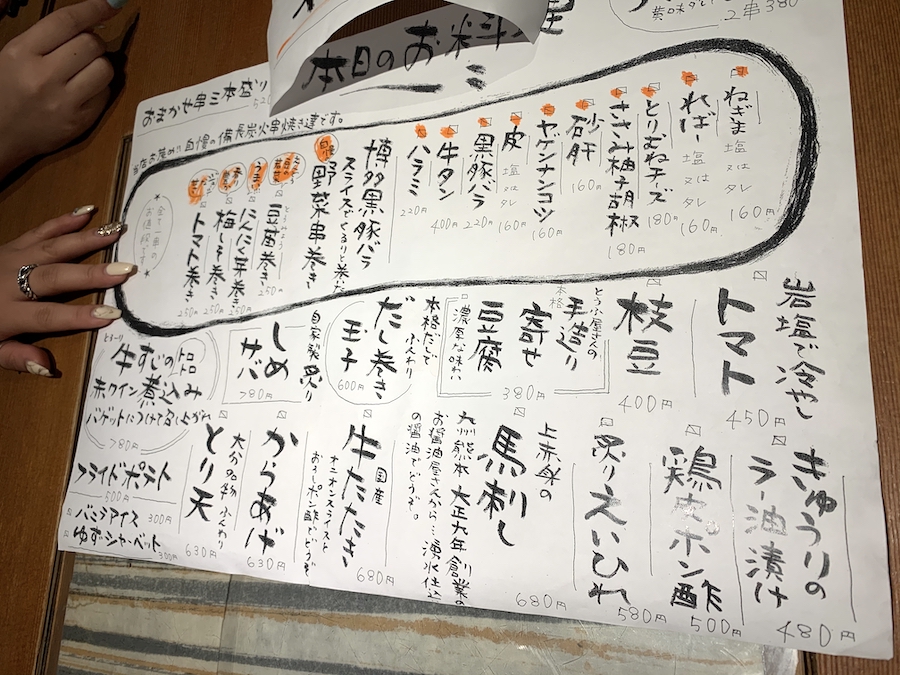 本日のお料理
黄味ダレ
2串380
おまかせ串三本盛り
当店お薦め!!自慢の備長炭火串焼き達です。
ねぎま 塩又はタレ 160円
ればー 塩又はタレ 160円
とりむねチーズ 180円
ささみ柚子胡椒 180円
砂肝 160円
ヤゲンナンコツ 160円
皮 塩又はタレ 160円
黒豚バラ 220円
牛タン 400円
ハラミ 220円
博多黒豚バラ
スライスでくるりと
自慢
野菜串巻き
豆苗巻き 250円
にんにく芽巻き 250円
梅しそ巻き 250円
トマト巻き 250円
全て一串の
お値段です
岩塩で冷やし
トマト
450円
枝豆
400円
とうふ屋さんの
本格
手造り
寄せ
豆腐
濃厚な味わい
380円
本格だしで
ふんわり
だし巻き
玉子
600円
自家製炙り
しめ
サバ
780円
牛すじの
トロトロ
赤ワイン煮込み
バゲットにつけて召し上がれ
780円
きゅうりの
ラー油漬け
480円
鶏皮ポン酢
500円
炙りえいひれ
580円
上赤身の
馬刺し
680円
九州熊本 大正九年創業の
お醤油屋さんから…湧水仕込
の醤油でどうぞ。
国産
牛たたき
オニオンスライスと
おろしポン酢でどうぞ
680円
からあげ
630円
大分名物 ふんわり
とり天
630円
フライドポテト
500円
バニラアイス 300円
ゆずシャーベット 300円